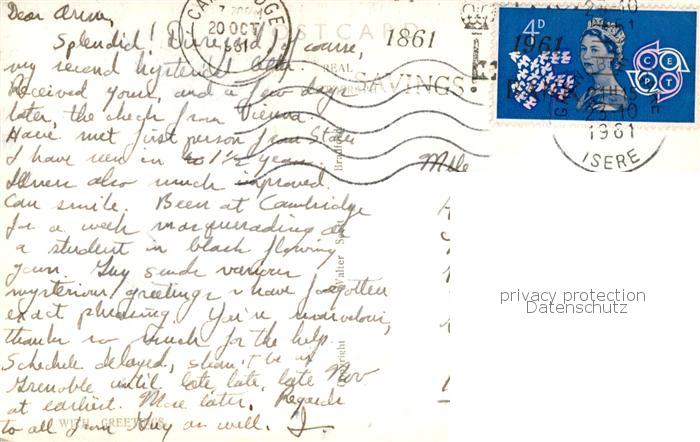 Dear
Splendid! Disregard, of course,
my second hysterical letter.
Received yours, and a few days
later, the check from Vienna.
Have met first person from States
I have seen in 1½ years.
also much improved.
Can smile. Been at Cambridge
for a week masquerading as
a student in black flowing
gown. Guy sends various
mysterious greetings I have forgotten
exact phrasing. You're marvelous,
thanks so much for the help.
Schedule delayed, shan't be in
Grenoble until late, late, late Nov
at earliest. More later, Regards
to all from Guy as well. J
WITH GREETINGS
POST CARD
REAL
Copyright Walter Scott Bradford
CAMBRIDGE
20 OCT
1961
1861 1961
SAVINGS
4D
CEPT
23-10
1961
ISERE
Mlle
privacy protection
Datenschutz